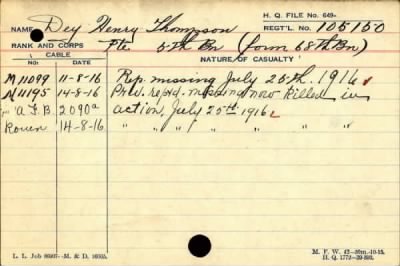 H. Q. FILE No. 649-
NAME Dey Henry Thompson REGT'L. No. 105150
RANK AND CORPS Pte 5th Bn (form 68th Bn)
CABLE NATURE OF CASUALTY
No. DATE
M 11099 11-8-16 Rep. missing July 25th. 1916
M 11195 14-8-16 Prev. repd. missing now killed in
"A.F.B. 2090a action July 25th 1916
Rouen 14-8-16 " " " " " "
L. L. Job 86907-M. & D. 16055.
M. F. W. 42-50m.-10-15.
H. Q. 1772-39-893.